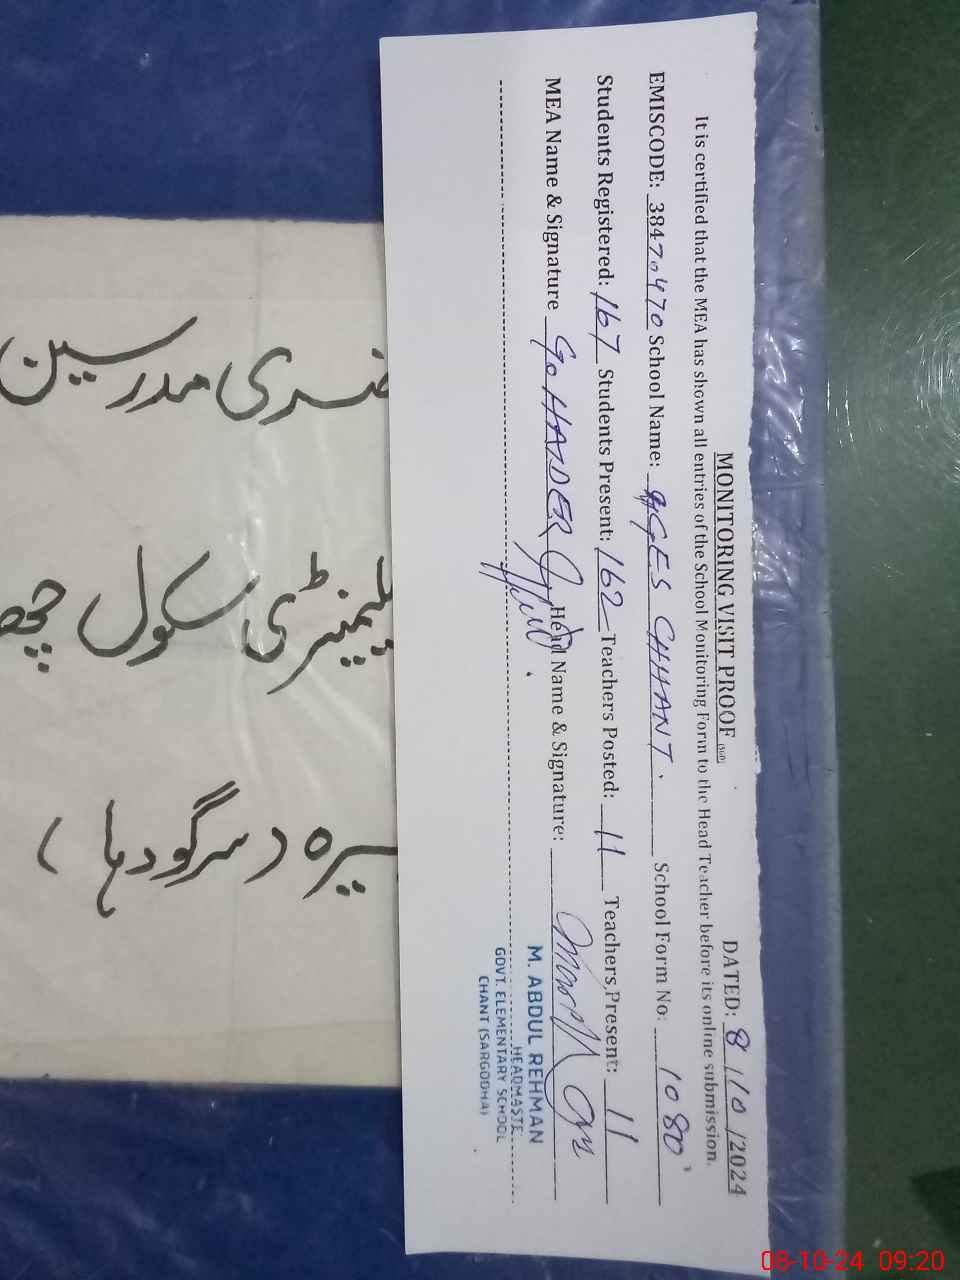 MONITORING VISIT PROOF
DATED: 8/10/2024
It is certified that the MEA has shown all entries of the School Monitoring Form to the Head Teacher before its online submission.
EMISCODE: 38470470 School Name: GES CHHANT. School Form No: 1080
Students Registered: 167 Students Present: 162 Teachers Posted: 11 Teachers Present: 11
MEA Name & Signature HAIDER Head Name & Signature:
M. ABDUL REHMAN
HEADMASTE
GOVT. ELEMENTARY SCHOOL
CHANT (SARGODHA)
مدرسین
سکول
سرگودہا
08-10-24 09:20